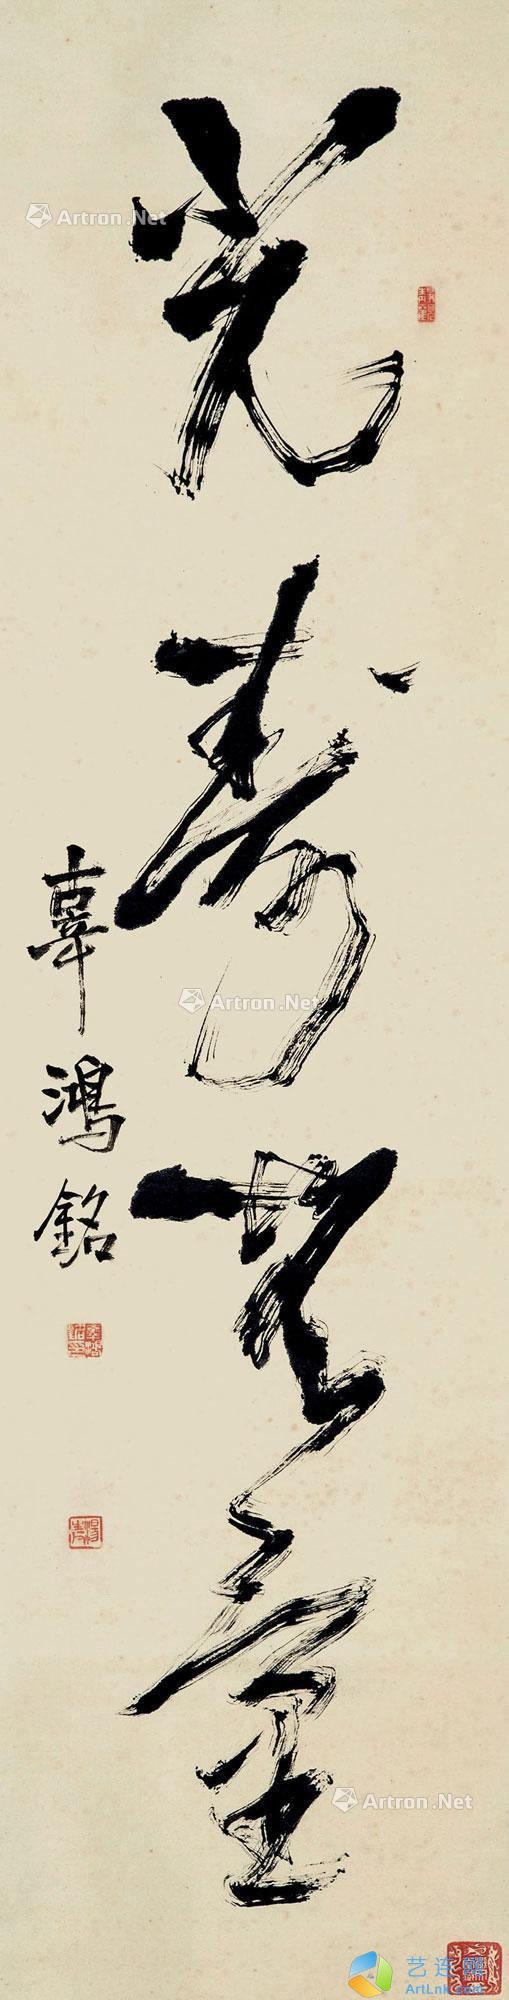 光壽無量
辜鴻銘
Artron.Net
Artron.Net
Artron.Net
艺连网
ArtLnk.com